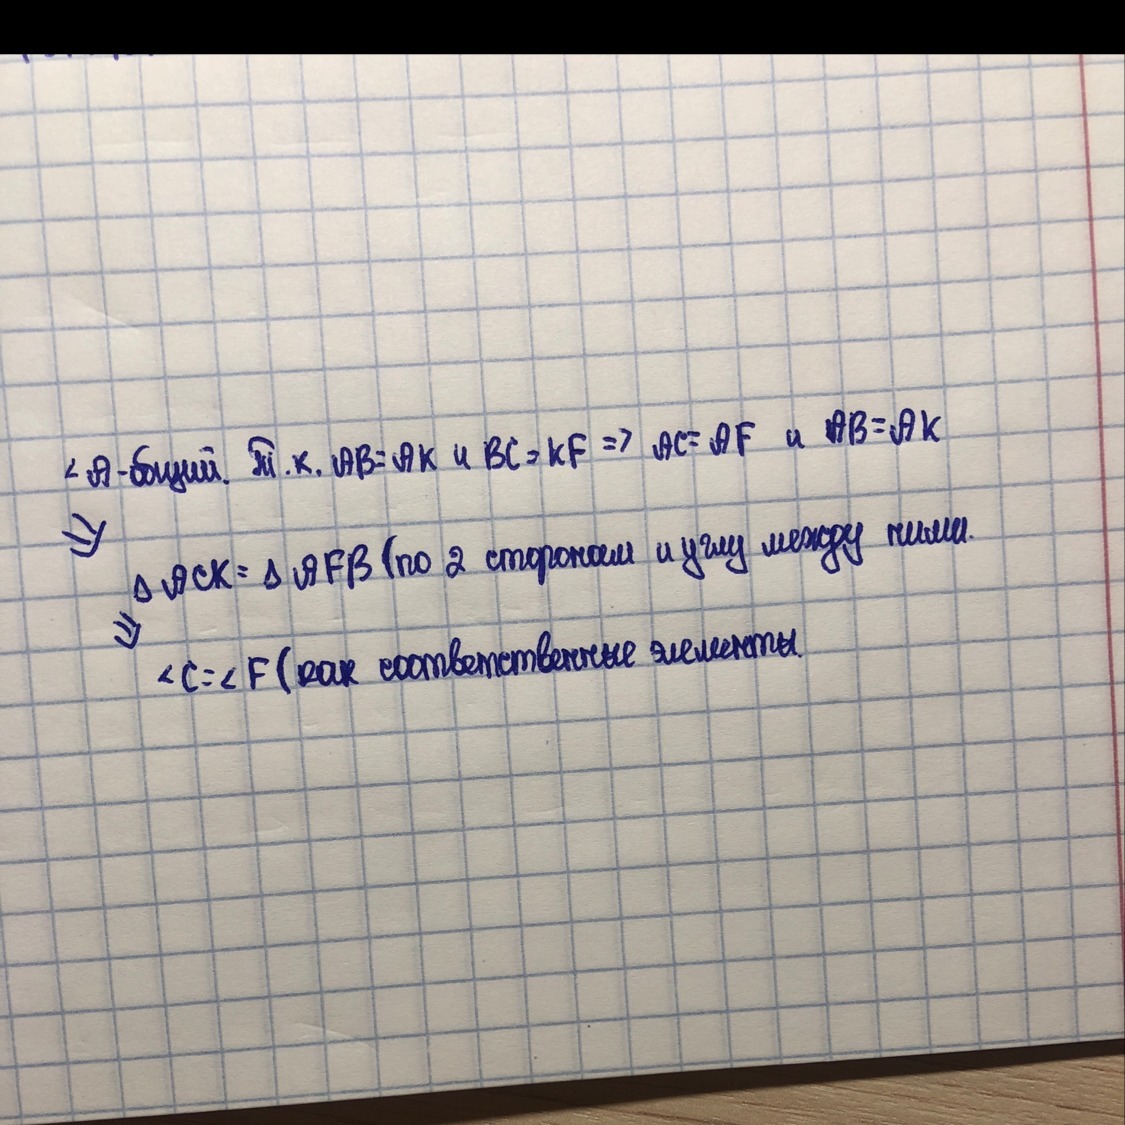 ∠A-бощий. Т.к. AB=AK и BC=KF => AC=AF и AB=AK
=>
△ ACK = △ AFB (по 2 сторонам и углу между ними.
=>
∠C=∠F (как соответственные элементы.